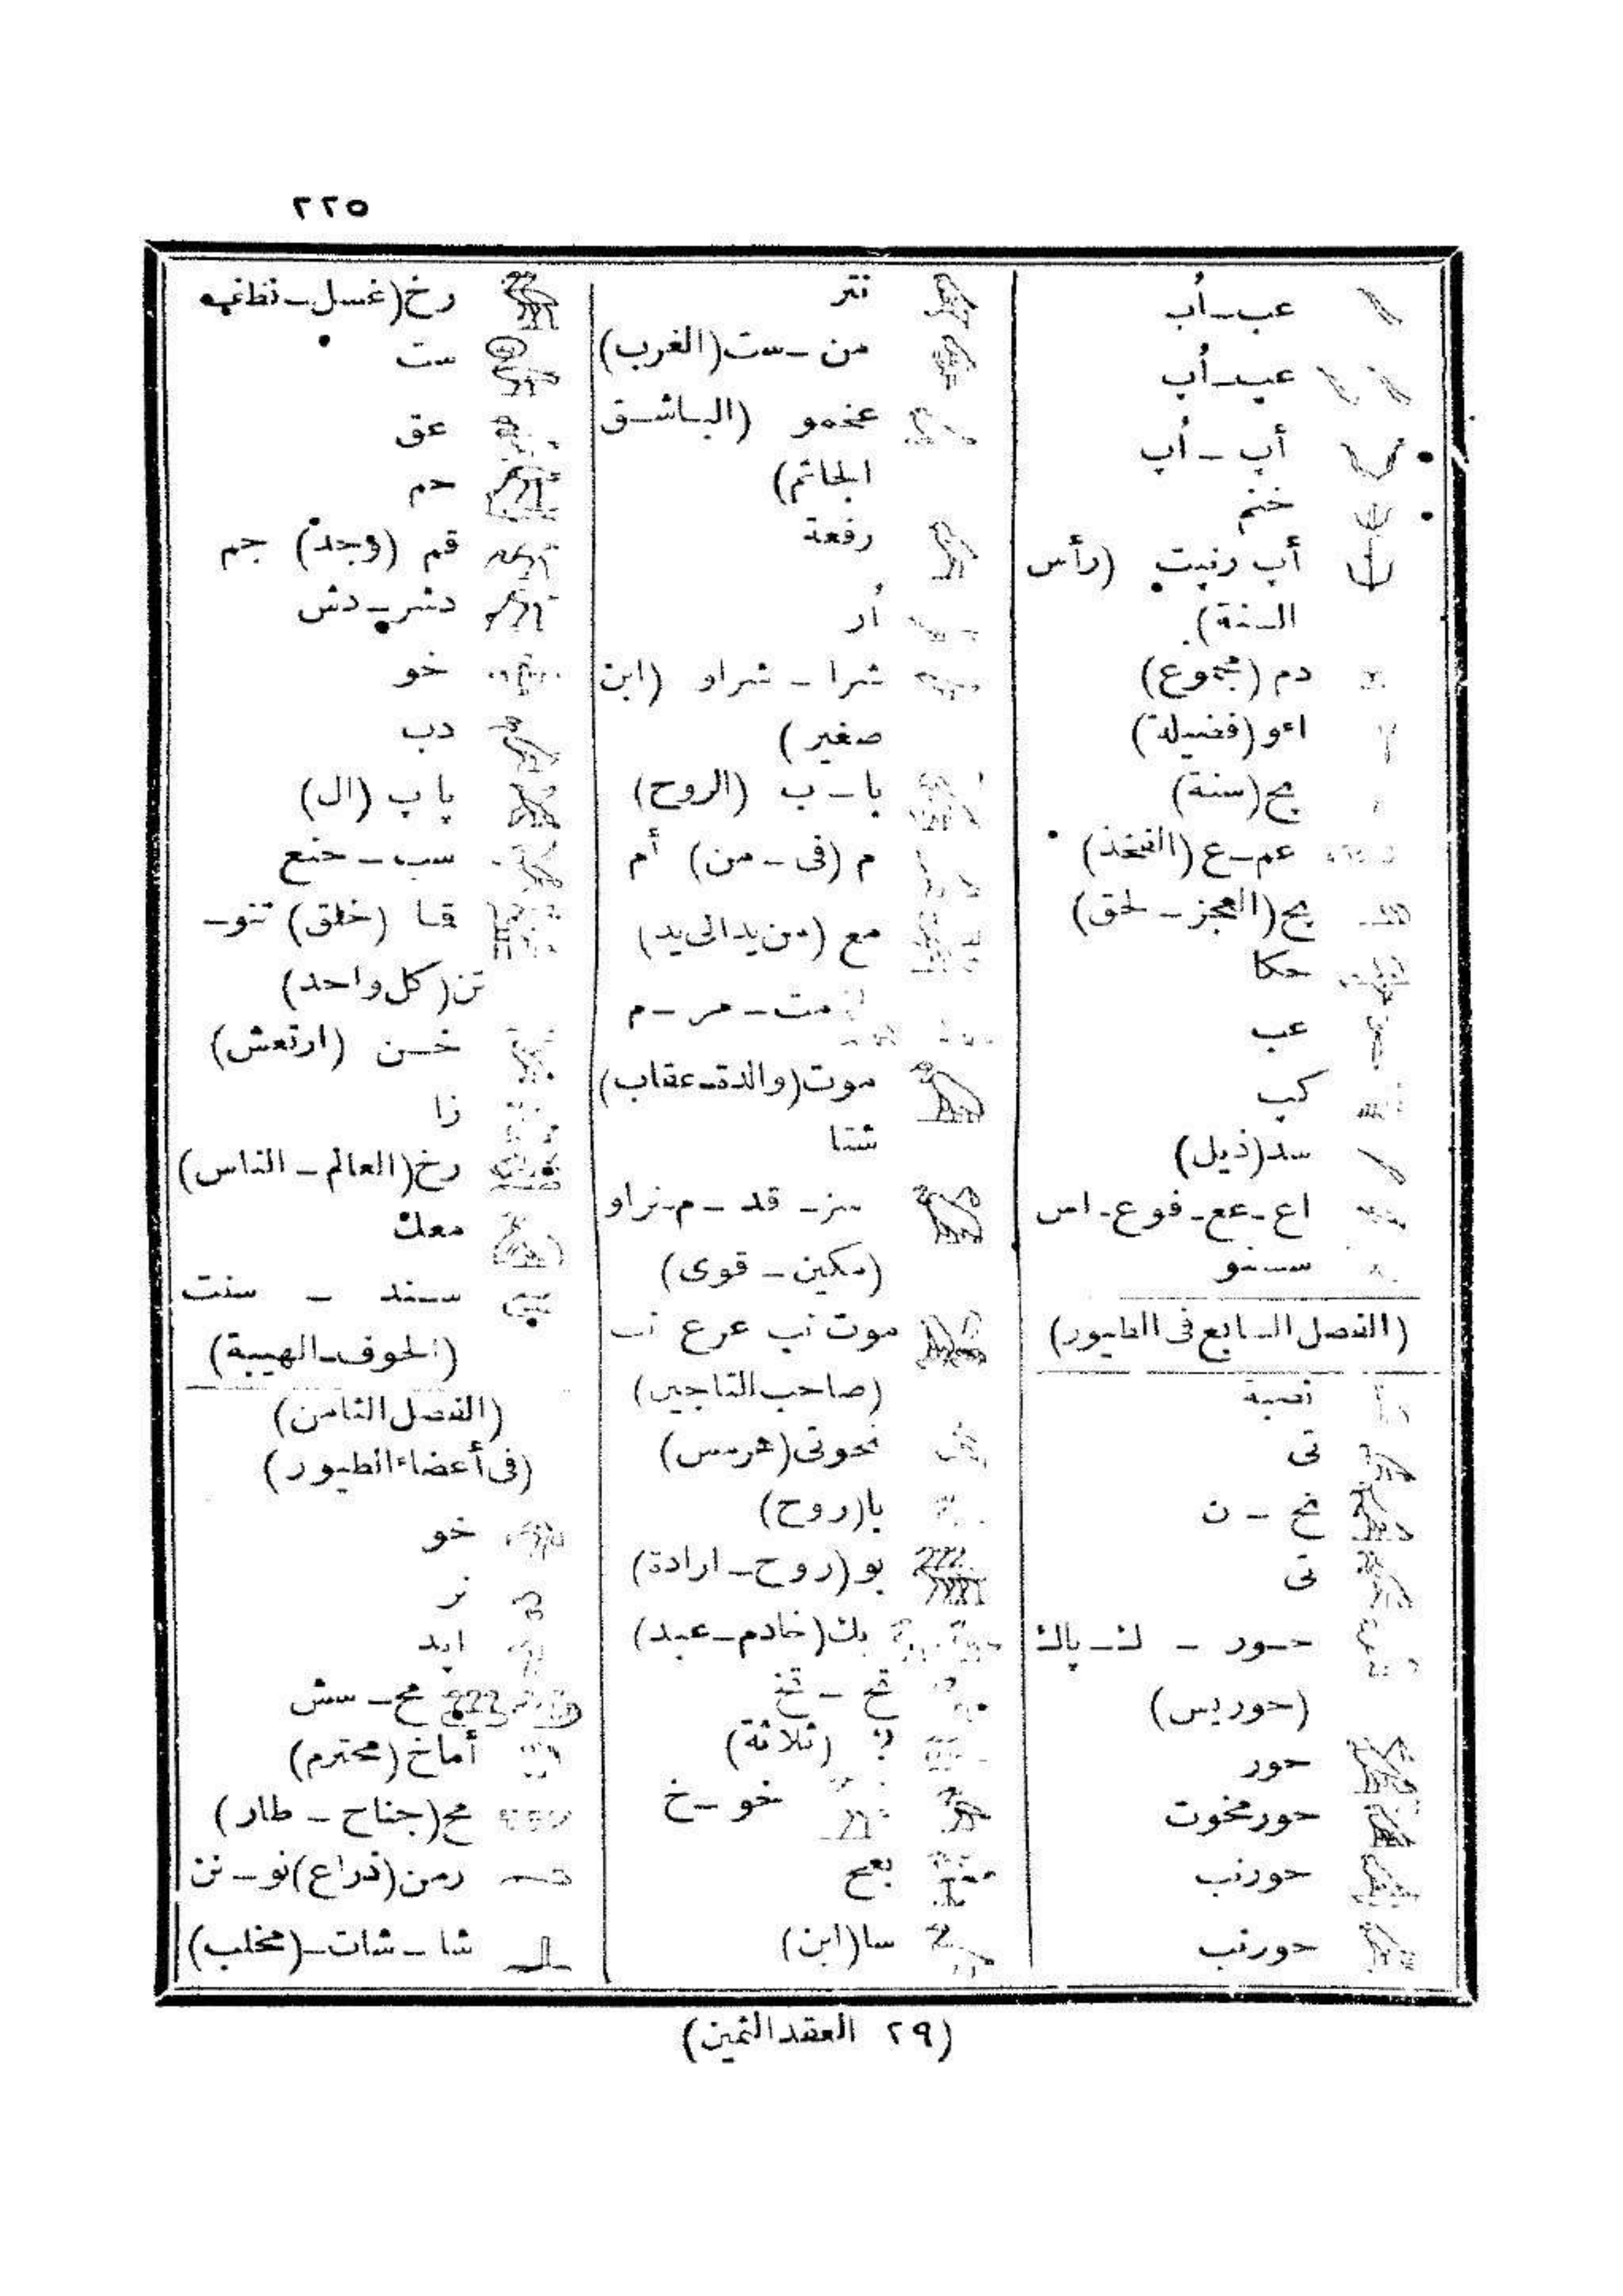 ٢٢٥
عب-أُب
عيب-أُب
أپ - أُپ
خنم
أپ رنپت (رأس
السنة)
دم (مجموع)
اءو (فضيلة)
پح (سنة)
عم-ع (الفخذ)
پح (العجز - لحق)
حكا
عب
كپ
سد (ذيل)
اع-عع-فوع-اس
سسنو
(الفصل السابع فى الطيور)
تى
نح - ن
تى
حور - ك-باك
(حوريس)
حور
حورمخوت
حورنب
حورنب
نتر
من-ست (الغرب)
عخمو (الباشق
الجاثم)
رفعة
أُر
شرا - شراو (ابن
صغير)
با-ب (الروح)
م (فى - من) أم
مع (من يد الى يد)
مت - مر - م
موت (والدة-عقاب)
شتا
نز- قد - م-نراو
(مكين - قوى)
موت نب عرع نب
(صاحب التاجين)
تحوتى (هرمس)
با (روح)
بو (روح - ارادة)
بك (خادم-عبد)
تح - تخ
؟ (ثلاثة)
خو - خ
بعح
سا (ابن)
رخ (غسل-نظافه
ست
عق
حم
قم (وجد) جم
دشر-دش
خو
دب
پا پ (ال)
سب - حنع
قا (خلق) تنو-
تن (كل واحد)
خسن (ارتعش)
زا
رخ (العالم - الناس)
معك
سند - سنت
(الخوف-الهيبة)
(الفصل الثامن)
(فى أعضاء الطيور)
خو
نر
اپد
مح - سش
أماخ (محترم)
مح (جناح - طار)
رمن (ذراع) نو - نن
شا - شات - (مخلب)
(٢٩ العقد الثمين)